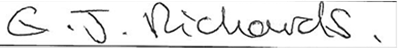 G. J. Richards.